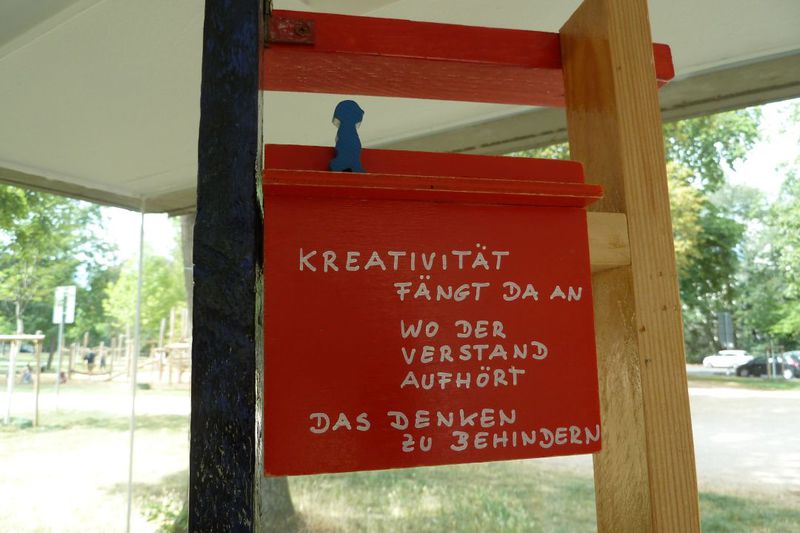 KREATIVITÄT
FÄNGT DA AN
WO DER
VERSTAND
AUFHÖRT
DAS DENKEN
ZU BEHINDERN